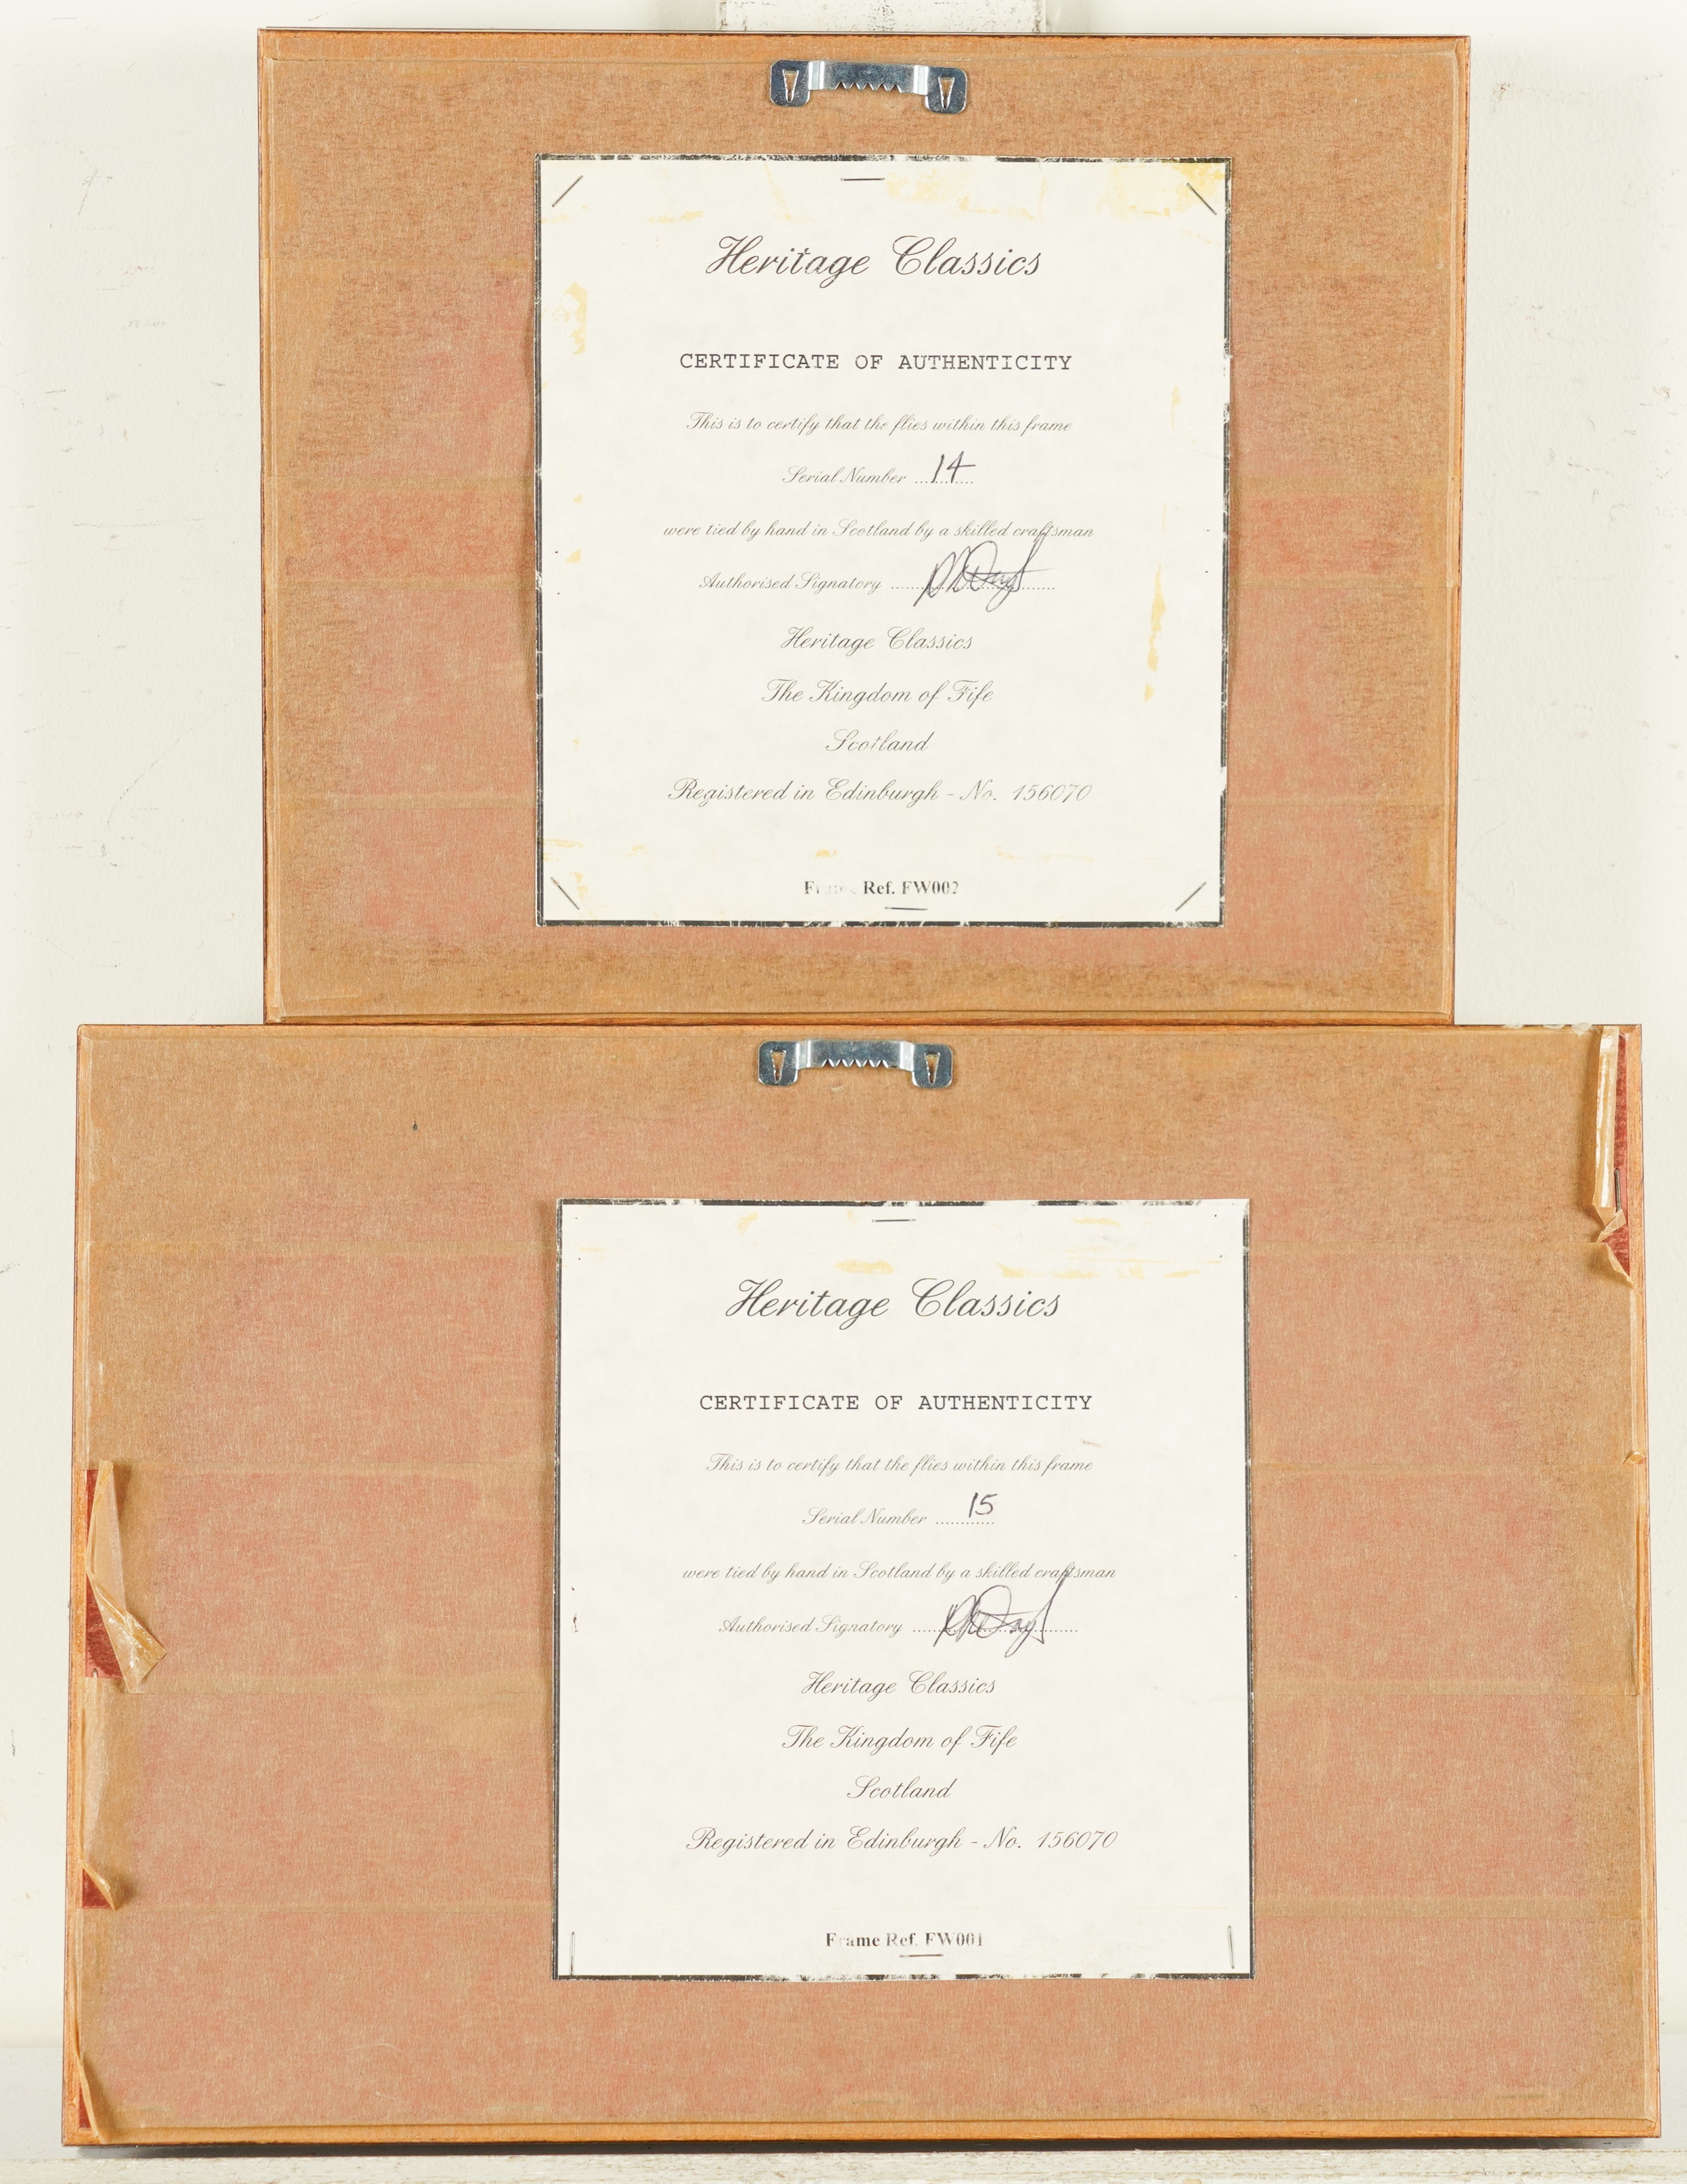 Heritage Classics
CERTIFICATE OF AUTHENTICITY
This is to certify that the flies within this frame
Serial Number ............ 14
were tied by hand in Scotland by a skilled craftsman
Authorised Signatory ..................................
Heritage Classics
The Kingdom of Fife
Scotland
Registered in Edinburgh - No. 156070
Frame Ref. FW002
Heritage Classics
CERTIFICATE OF AUTHENTICITY
This is to certify that the flies within this frame
Serial Number ............ 15
were tied by hand in Scotland by a skilled craftsman
Authorised Signatory ..................................
Heritage Classics
The Kingdom of Fife
Scotland
Registered in Edinburgh - No. 156070
Frame Ref. FW001